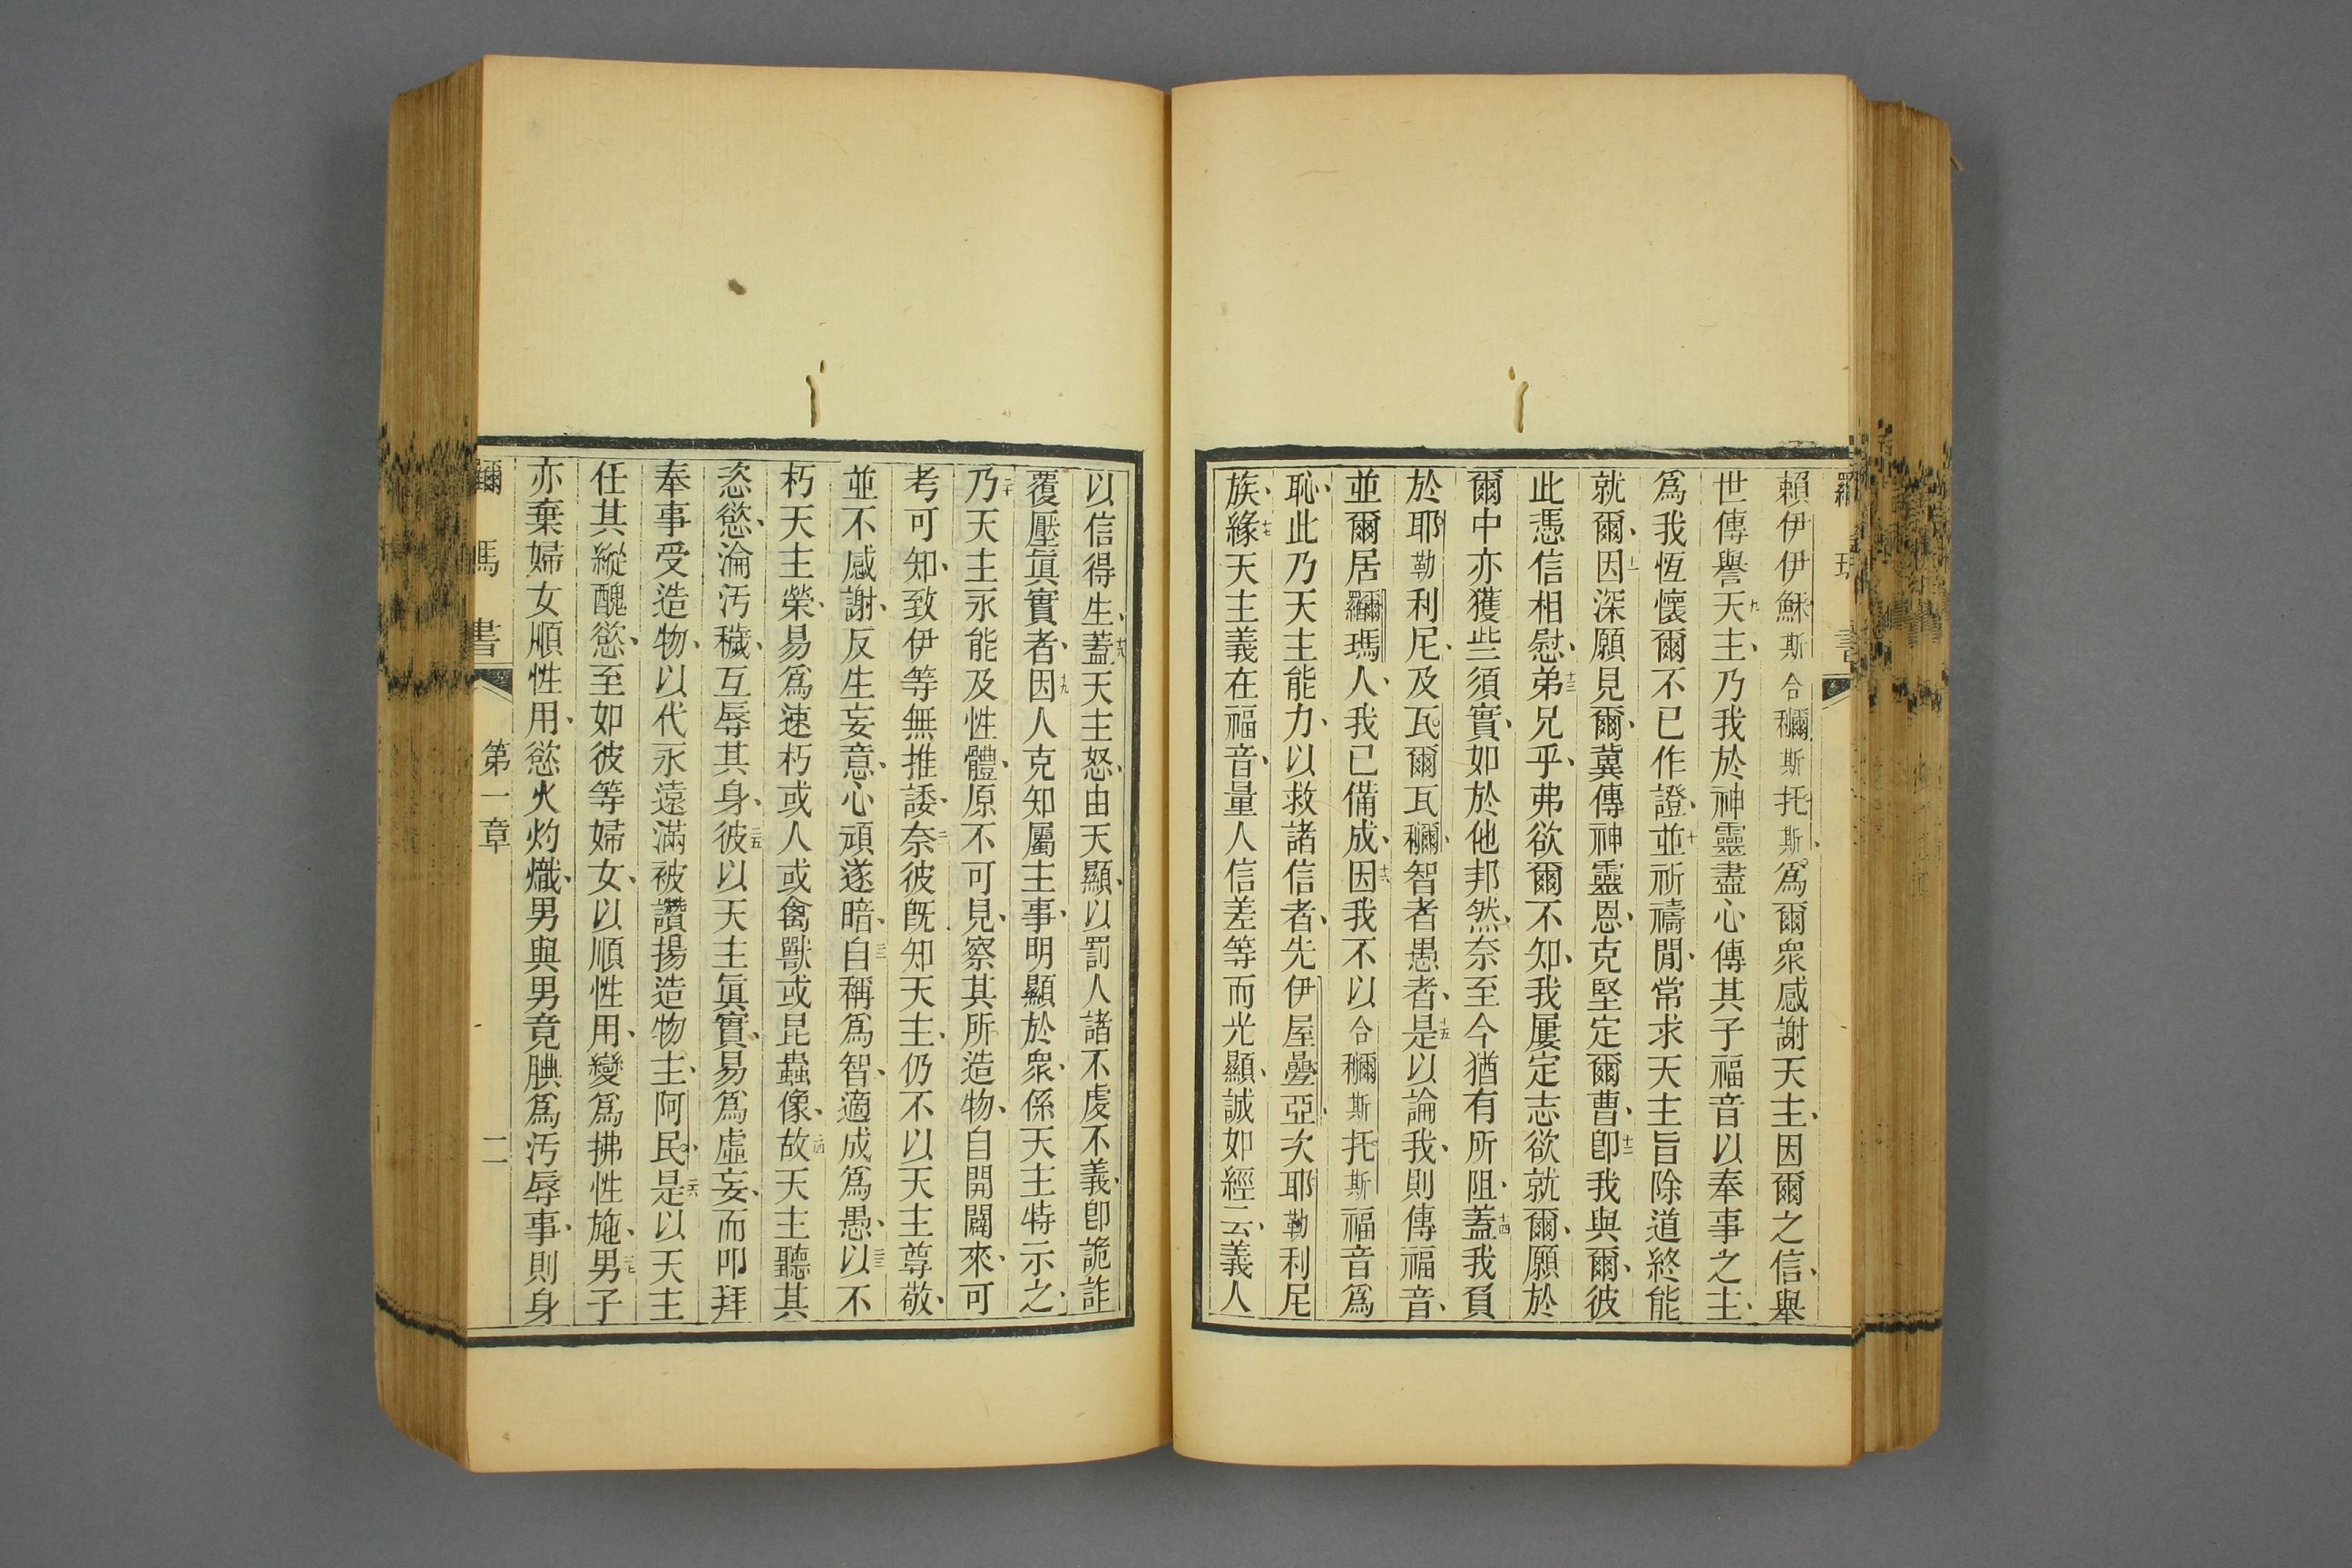 賴伊伊穌斯合𮂱斯托斯爲爾衆感謝天主、因爾之信、舉
世傳譽、九天主、乃我於神靈盡心傳其子福音以奉事之主、
爲我恆懷爾不已作證、十並祈禱閒、常求天主旨除道終能
就爾、十一因深願見爾、冀傳神靈恩、克堅定爾曹、十二卽我與爾、彼
此憑信相慰、十三弟兄乎、弗欲爾不知、我屢定志欲就爾、願於
爾中亦獲些須實、如於他邦然、奈至今猶有所阻、十四蓋我負
於耶勒利尼、及瓦爾瓦𮂱、智者愚者、十五是以論我、則傳福音、
並爾居羅爾瑪人、我已備成、十六因我不以合𮂱斯托斯福音爲
恥、此乃天主能力、以救諸信者、先伊屋疊亞、次耶勒利尼
族、十七緣天主義在福音、量人信差等而光顯、誠如經云、義人
以信得生、十八蓋天主怒、由天顯、以罰人諸不虔不義、卽詭詐
覆壓眞實者、十九因人克知屬主事、明顯於衆、係天主特示之、
二十乃天主永能及性體、原不可見、察其所造物、自開闢來、可
考可知、致伊等無推諉、二一奈彼旣知天主、仍不以天主尊敬、
並不感謝、反生妄意、心頑遂暗、二二自稱爲智、適成爲愚、二三以不
朽天主榮、易爲速朽或人或禽獸或昆蟲像、二四故天主聽其
恣慾、淪汚穢、互辱其身、二五彼以天主眞實、易爲虛妄、而叩拜
奉事受造物、以代永遠滿被讚揚造物主、阿民、二六是以天主
任其縱醜慾、至如彼等婦女、以順性用、變爲拂性施、二七男子
亦棄婦女順性用、慾火灼熾、男與男竟腆爲汚辱事、則身
瑪書 第一章 二